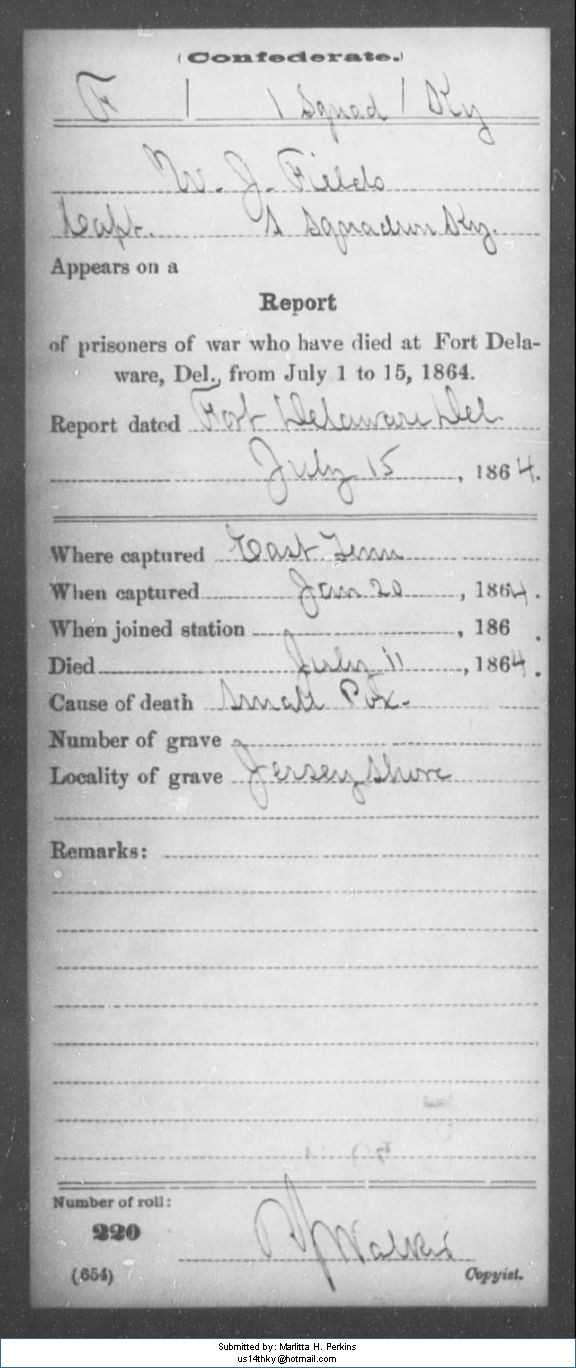 (Confederate.)
F | 1 Squad | Ky
W. J. Fields
Capt. 1 Squadron Ky.
Appears on a
Report
of prisoners of war who have died at Fort Dela-
ware, Del., from July 1 to 15, 1864.
Report dated Fort Delaware Del
July 15, 1864.
Where captured East Tenn
When captured Jan 20, 1864.
When joined station , 186 .
Died July 11, 1864.
Cause of death Small Pox.
Number of grave
Locality of grave Jersey Shore
Remarks:
Number of roll:
220
Walker
(654) Copyist.
Submitted by: Marlitta H. Perkins
us14thky@hotmail.com